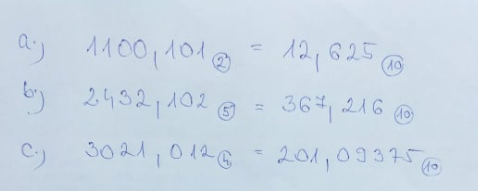 a.) 1100,101② = 12,625⑩
b.) 2432,102⑤ = 367,216⑩
c.) 3021,012④ = 201,09375⑩